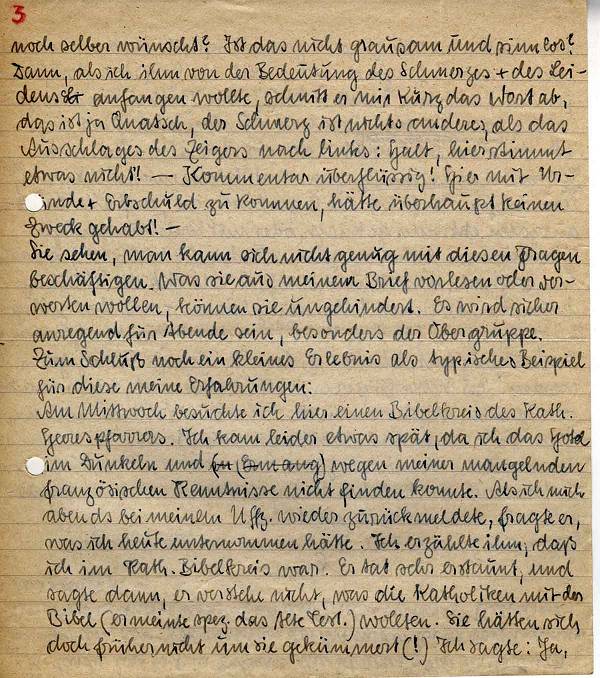 3
noch selber wünscht? Ist das nicht grausam und sinnlos?
Dann, als ich ihm von der Bedeutung des Schmerzes + des Lei-
dens anfangen wollte, schnitt er mir kurz das Wort ab,
das ist ja Quatsch, der Schmerz ist nichts anderes, als das
Ausschlages des Zeigers nach links: Halt, hier stimmt
etwas nicht! — Kommentar überflüssig! Hier mit Ur-
sünde + Erbschuld zu kommen, hätte überhaupt keinen
Zweck gehabt! —
Sie sehen, man kann sich nicht genug mit diesen Fragen
beschäftigen. Was sie aus meinem Brief vorlesen oder ver-
werten wollen, können sie ungehindert. Es wird sicher
anregend für Abende sein, besonders der Obergruppe.
Zum Schluß noch ein kleines Erlebnis als typisches Beispiel
für diese meine Erfahrungen:
Am Mittwoch besuchte ich hier einen Bibelkreis des Kath.
Heerespfarrers. Ich kam leider etwas spät, da ich das Hotel
im Dunkeln und wegen meiner mangelnden
französischen Kenntnisse nicht finden konnte. Als ich mich
abends bei meinem Uffz. wieder zurückmeldete, fragte er,
was ich heute unternommen hätte. Ich erzählte ihm, daß
ich im Kath. Bibelkreis war. Er tat sehr erstaunt, und
sagte dann, er verstehe nicht, was die Katholiken mit der
Bibel (er meinte spez. das Alte Test.) wollten. Sie hätten sich
doch früher nicht um sie gekümmert (!) Ich sagte: Ja,